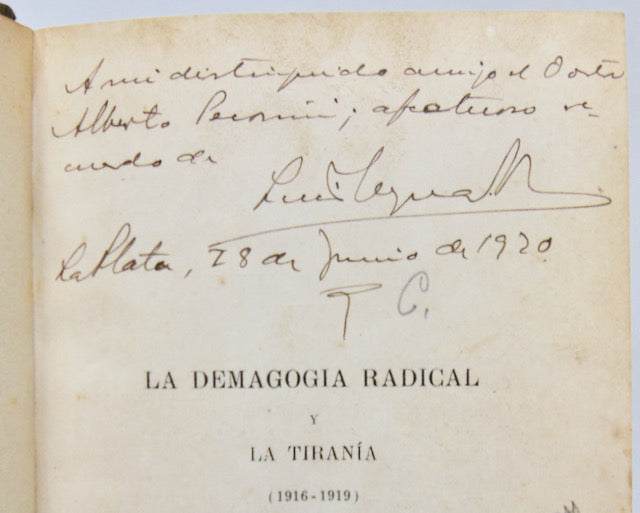 A mi distinguido amigo el Doctor
Alberto Pecorini; afectuoso re-
cuerdo de
Luis
La Plata, 28 de Junio de 1920
C.
LA DEMAGOGIA RADICAL
Y
LA TIRANÍA
(1916-1919)